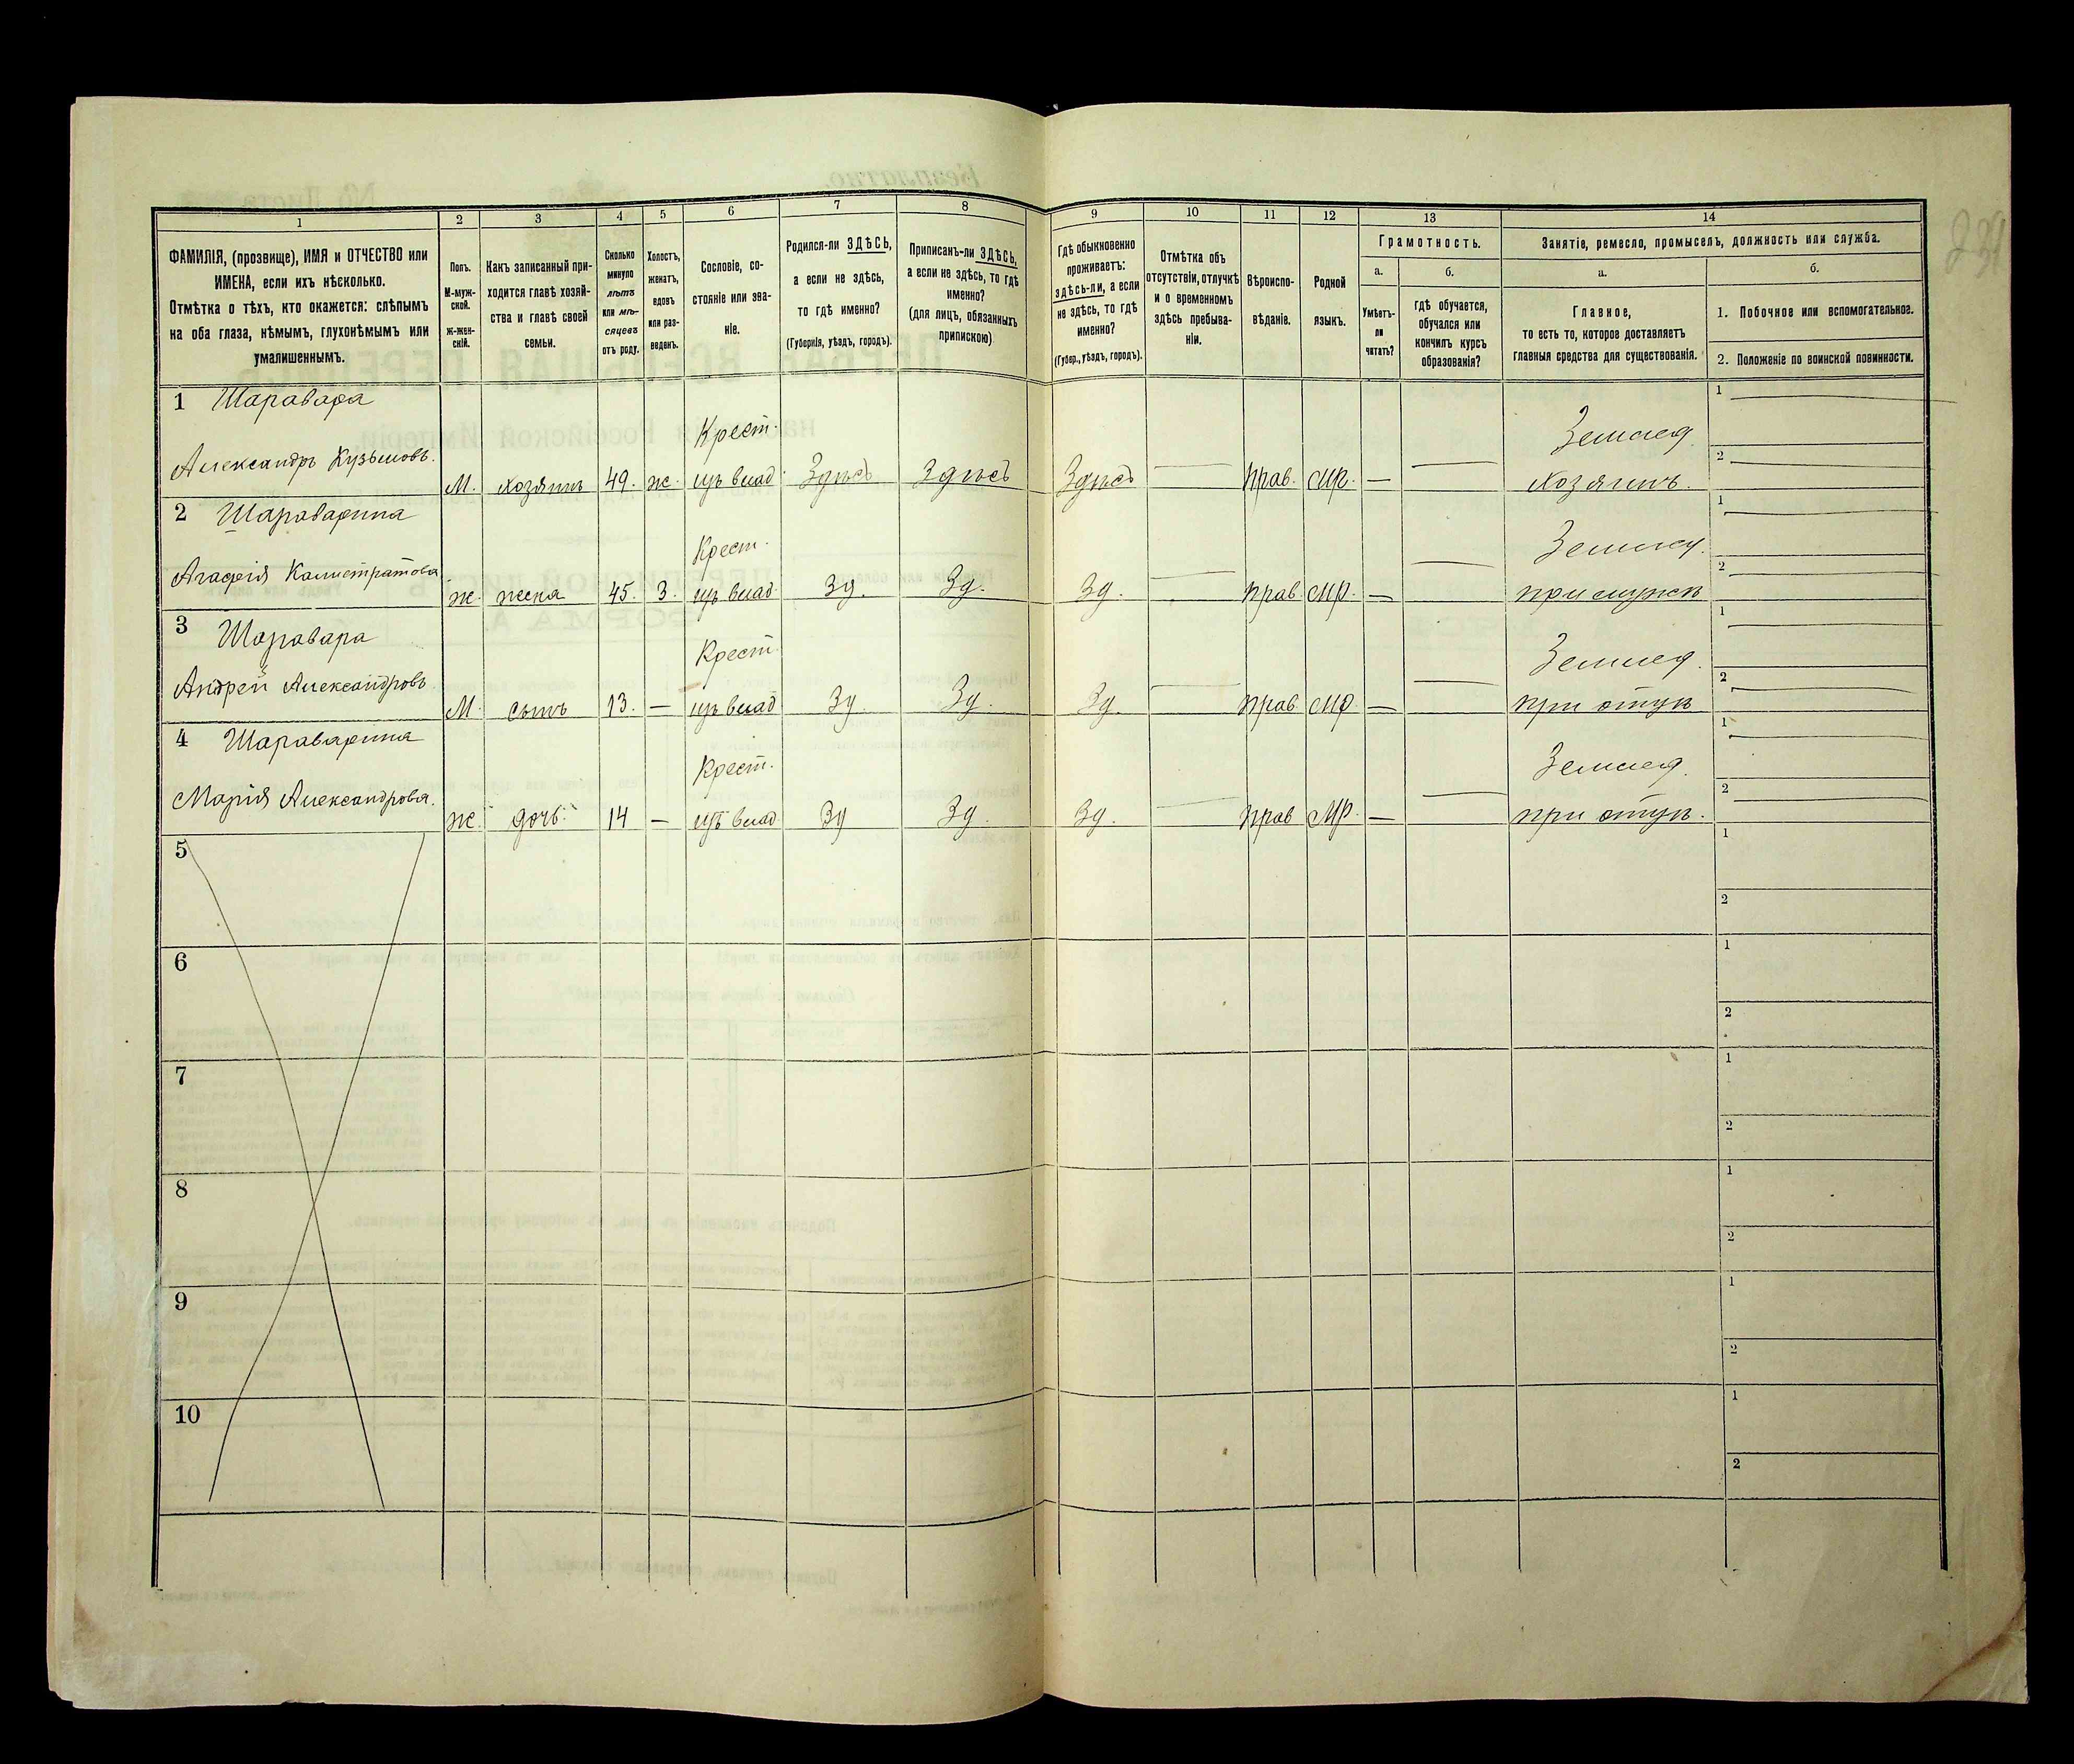 239
1 2 3 4 5 6 7 8 9 10 11 12 13 14
ФАМИЛІЯ, (прозвище), ИМЯ и ОТЧЕСТВО или
ИМЕНА, если ихъ нѣсколько.
Отмѣтка о тѣхъ, кто окажется: слѣпымъ
на оба глаза, нѣмымъ, глухонѣмымъ или
умалишеннымъ.
Полъ.
М-муж-
ской.
ж-жен-
скій.
Какъ записанный при-
ходится главѣ хозяй-
ства и главѣ своей
семьи.
Сколько
минуло
лѣтъ
или мѣ-
сяцевъ
отъ роду.
Холостъ,
женатъ,
вдовъ
или раз-
веденъ.
Сословіе, со-
стояніе или зва-
ніе.
Родился-ли ЗДѢСЬ,
а если не здѣсь,
то гдѣ именно?
(Губернія, уѣздъ, городъ).
Приписанъ-ли ЗДѢСЬ,
а если не здѣсь, то гдѣ
именно?
(для лицъ, обязанныхъ
припискою)
Гдѣ обыкновенно
проживаетъ:
здѣсь-ли, а если
не здѣсь, то гдѣ
именно?
(Губер., уѣздъ, городъ).
Отмѣтка объ
отсутствіи, отлучкѣ
и о временномъ
здѣсь пребыва-
ніи.
Вѣроиспо-
вѣданіе.
Родной
языкъ.
Грамотность.
а.
Умѣетъ-
ли
читать?
б.
гдѣ обучается,
обучался или
кончилъ курсъ
образованія?
Занятіе, ремесло, промыселъ, должность или служба.
а.
Главное,
то есть то, которое доставляетъ
главныя средства для существованія.
б.
1. Побочное или вспомогательное.
2. Положеніе по воинской повинности.
1 Шаравара
Александръ Кузьмовъ.
М. хозяинъ 49. ж. Крест.
изъ влад. Здѣсь Здѣсь Здѣсь — прав. мр. — — Землед.
хозяинъ.
1 —
2 —
2 Шараварина
Агафія Калистратова
ж. жена 45. З. Крест.
изъ влад. Зд. Зд. Зд. — прав. мр. — — Землед.
при мужѣ
1 —
2 —
3 Шаравара
Андрей Александровъ
М. сынъ 13. — Крест.
изъ влад Зд. Зд. Зд. — прав. мр — — Землед.
при отцѣ
1 —
2 —
4 Шараварина
Марія Александрова.
ж. дочь. 14 — Крест.
изъ влад Зд Зд. Зд. — прав мр. — — Землед.
при отцѣ.
1 —
2 —
5
1
2
6
1
2
7
1
2
8
1
2
9
1
2
10
1
2